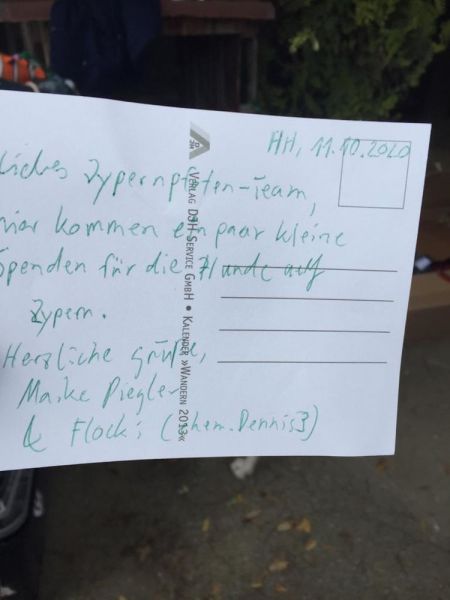 HH, 11.10.2020
liebes Zypernpfoten-Team,
hier kommen ein paar kleine
Spenden für die Hunde auf
Zypern.
Herzliche Grüße,
Maike Piegler
& Flocki (ehem. Dennis3)
DJH
VERLAG DJH SERVICE GMBH • KALENDER »WANDERN 2013«